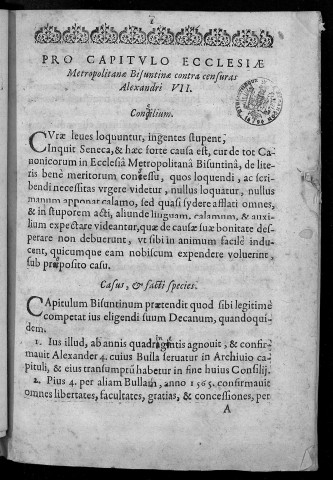 1
PRO CAPITVLO ECCLESIÆ
Metropolitanæ Bisuntinæ contra censuras
Alexandri VII.
Consilium.
CVræ leues loquuntur, ingentes stupent,
Inquit Seneca, & hæc forte causa est, cur de tot Ca-
nonicorum in Ecclesiâ Metropolitanâ Bisuntinâ, de lite-
ris benè meritorum congessu, quos loquendi, ac scri-
bendi necessitas vrgere videtur, nullus loquatur, nullus
manum apponat calamo, sed quasi sydere afflati omnes,
& in stuporem acti, aliunde linguam, calamum, & auxi-
lium expectare videantur, quæ de causæ suæ bonitate des-
perare non debuerunt, vt sibi in animum facilè indu-
cent, quicumque eam nobiscum expendere voluerint,
sub proposito casu.
Casus, & facti species.
CApitulum Bisuntinum prætendit quod sibi legitimè
competat ius eligendi suum Decanum, quandoqui-
dem.
1. Ius illud, ab annis quadringentis agnouit, & confir-
mauit Alexander 4. cuius Bulla seruatur in Archiuio ca-
pituli, & eius transumptū habetur in fine huius Consilij.
2. Pius 4. per aliam Bullam, anno 1565. confirmauit
omnes libertates, facultates, gratias, & concessiones, per
A